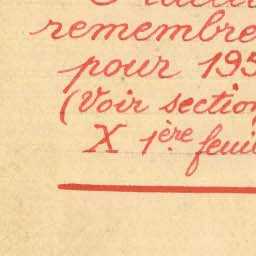 remembre
pour 195
(Voir section
X 1ère feuil